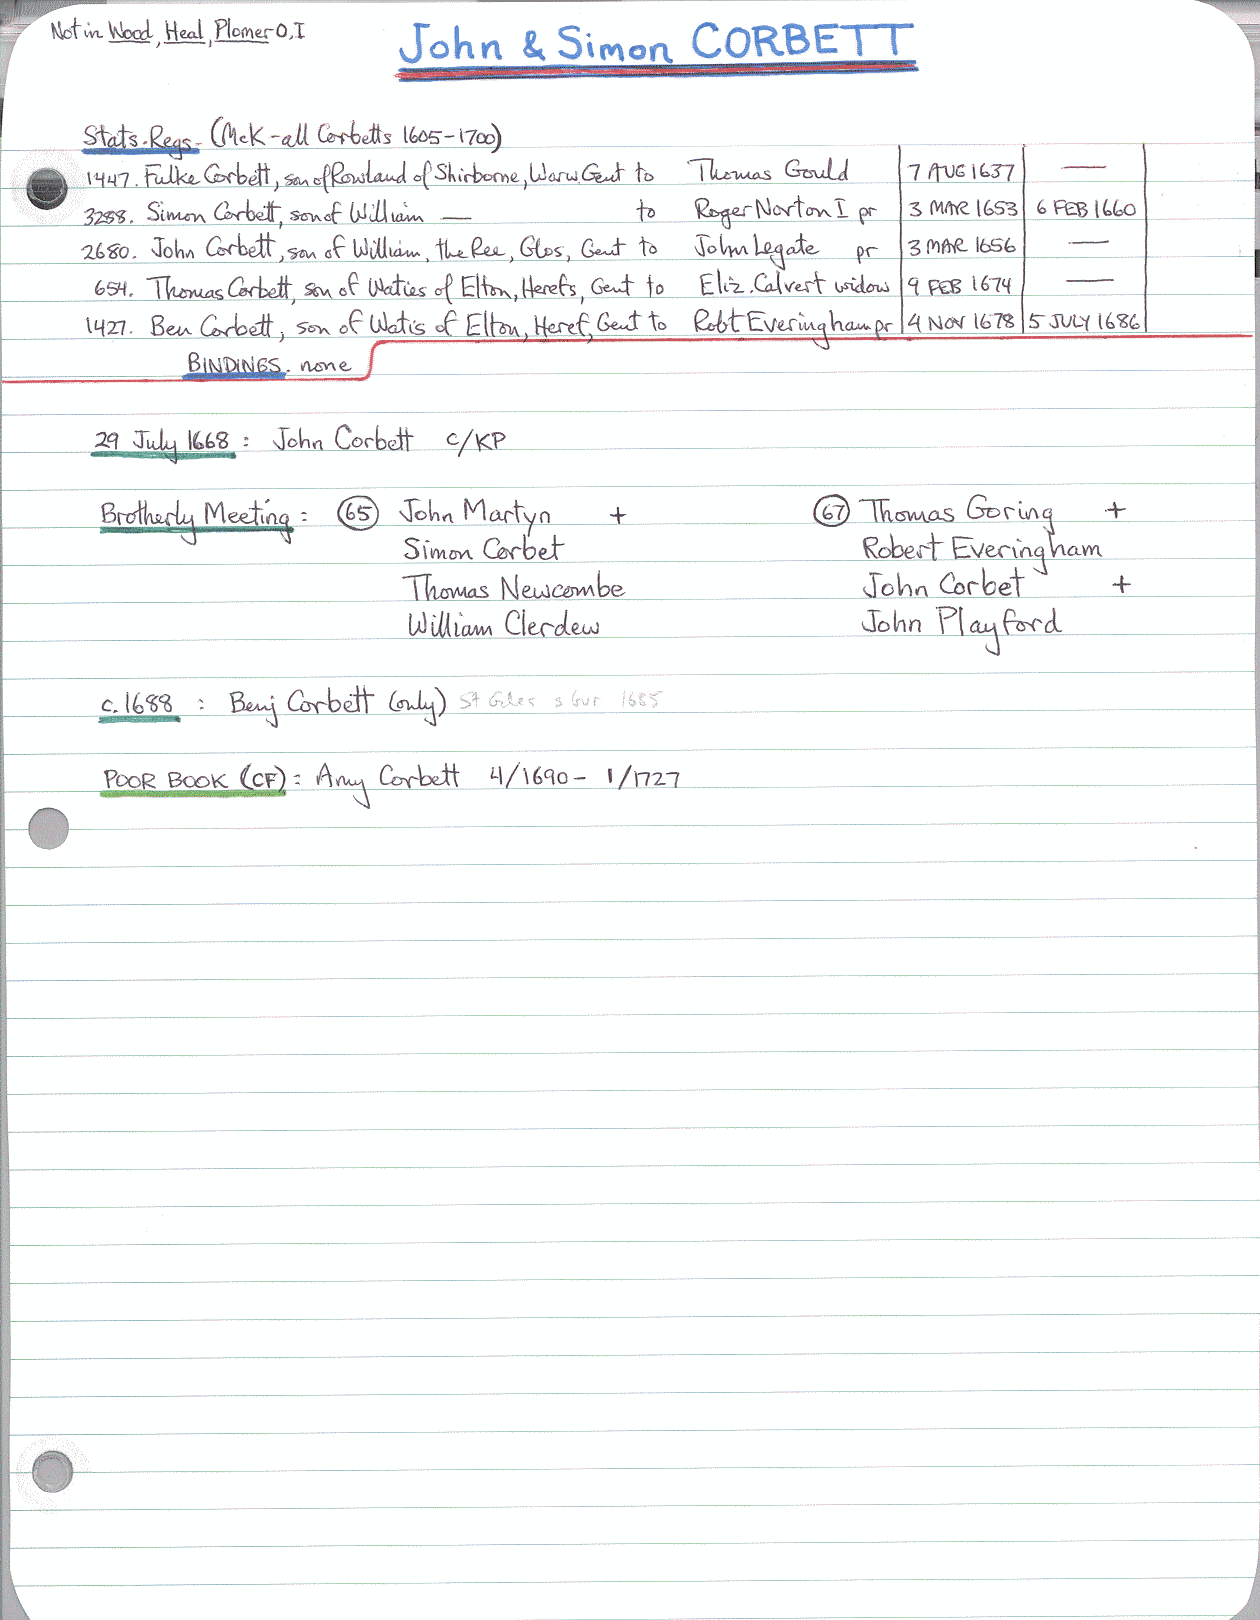 Not in Wood, Heal, Plomer O, I
John & Simon CORBETT
Stats. Regs. (McK - all Corbetts 1605-1700)
1447. Fulke Corbett, son of Rowland of Shirborne, Warw. Gent to Thomas Gould 7 AUG 1637 —
3288. Simon Corbett, son of William — to Roger Norton I pr 3 MAR 1653 6 FEB 1660
2680. John Corbett, son of William, the Ree, Glos, Gent to John Legate pr 3 MAR 1656 —
654. Thomas Corbett, son of Waties of Elton, Herefs, Gent to Eliz. Calvert widow 9 FEB 1674 —
1427. Ben Corbett, son of Watis of Elton, Heref, Gent to Robt Everingham pr 4 NOV 1678 5 JULY 1686
BINDINGS. none
29 July 1668 : John Corbett c/KP
Brotherly Meeting : 65 John Martyn + 67 Thomas Goring +
Simon Corbet Robert Everingham
Thomas Newcombe John Corbet +
William Clerdew John Playford
c. 1688 : Benj Corbett (only) St Giles 1685
POOR BOOK (CF) : Amy Corbett 4/1690 - 1/1727